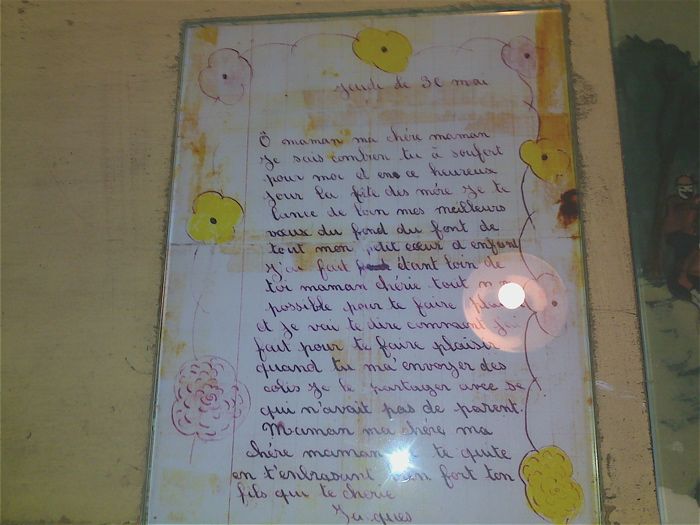 Jeudi le 30 mai
Ô maman ma chère maman
Je sais combien tu à soufert
pour moi et en ce heureux
jour la fête des mére Je te
lance de loin mes meilleurs
vœux du fond du font de
tout mon ptit cœur d enfant
J'ai fait étant loin de
toi maman chérie tout
possible pour te faire
et Je vai te dire comment J'ai
fait pour te faire plaisir
quand tu ma'envoyer des
colis Je le partager avec se
qui n'avait pas de parent.
Maman ma chére ma
chére maman te quite
en t'enbrasant fort ton
fils qui te cherie
Jaques